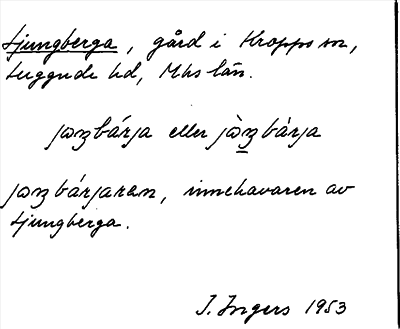 Ljungberga, gård i Kropps sn,
Luggude hd, Mhs län.
jɷŋbárja eller jɷ̀ŋbárja
jɷŋbárjaran, innehavaren av
Ljungberga.
I. Ingers 1953